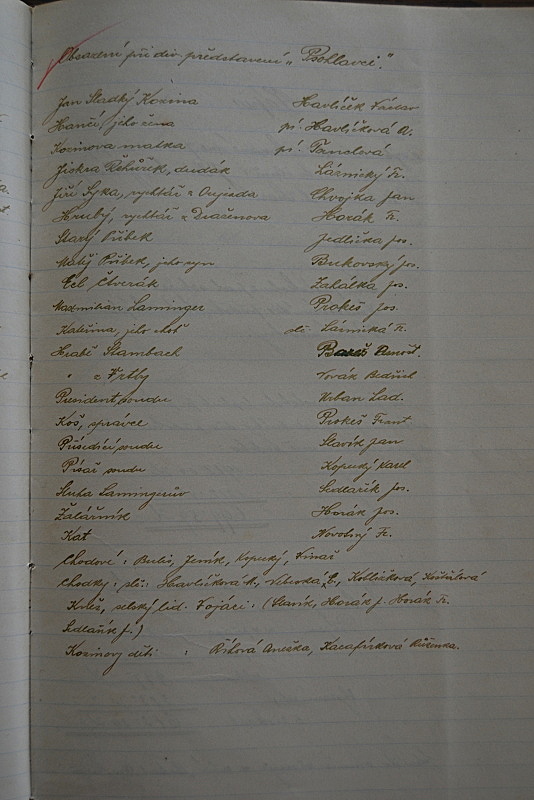 Obsazení při div. představení "Psohlavci".
Jan Sladký Kozina Havlíček Václav
Hančí, jeho žena pí. Havlíčková A.
Kozinova matka pí.
Jiskra Řehůřek, dudák Láznický Fr.
Jiří Syka, rychtář z Oujezda Chvojka Jan
Hrubý, rychtář z Draženova Horák Fr.
Starý Příbek Jedlička Jos.
Matěj Příbek, jeho syn Bukovský Jos.
Ecl Čtverák Zahálka Jos.
Maxmilian Laminger Prokeš Jos.
Kateřina, jeho choť slč. Fr.
Hrabě Stambach Bareš
" z Vrtby Novák Bedřich
President soudu Urban Lad.
Koš, správce Prokeš Frant.
Přísedící soudu Slavík Jan
Písař soudu Kopecký Karel
Sluha Lamingerův Sedlařík Jos.
Žalářník Horák Jos.
Kat Novotný Fr.
Chodové: Jeník, Kopecký,
Chodky: slč: Havlíčková A., Kotlíčková,
Kněz, selský lid. Vojáci: (Slavík, Horák J. Horák Fr.
Sedlařík J.)
Kozinovy děti: Anežka, Růženka.